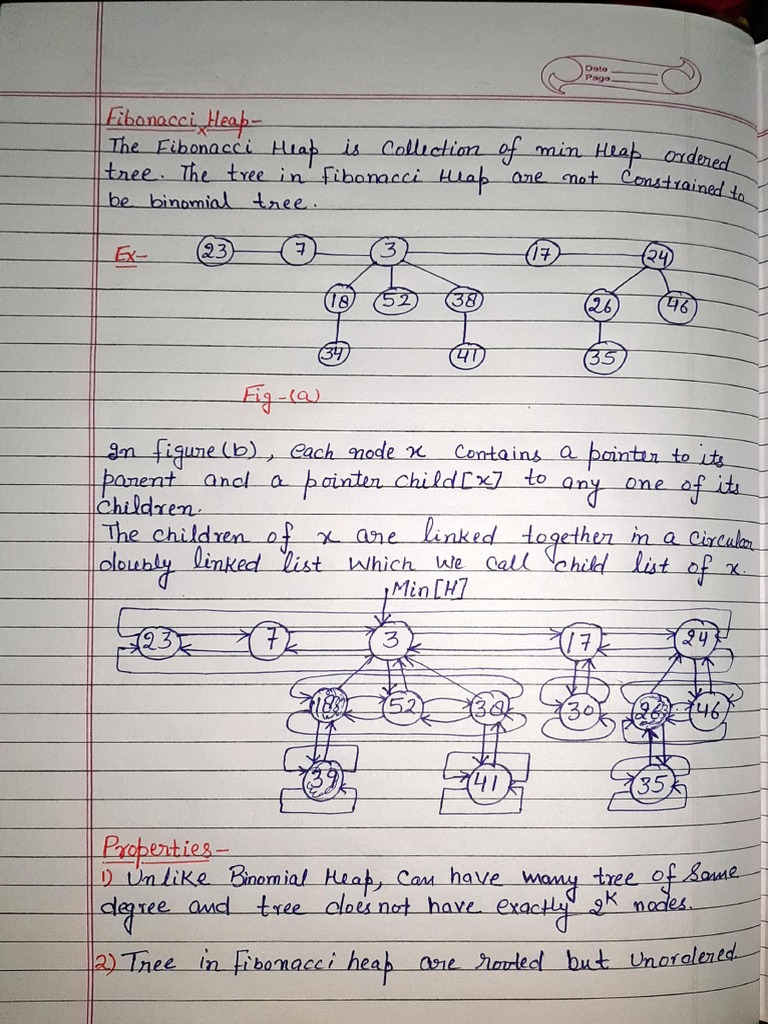 Date
Page
Fibonacci Heap-
The Fibonacci Heap is Collection of min Heap ordered
tree. The tree in Fibonacci Heap are not Constrained to
be binomial tree.
Ex-
23 7 3 17 24
18 52 38 26 46
34 41 35
Fig-(a)
In figure(b), each node x contains a pointer to its
parent and a pointer child[x] to any one of its
children.
The children of x are linked together in a circular
doubly linked list which we call child list of x.
Min[H]
23 7 3 17 24
18 52 38 30 26 46
39 41 35
Properties-
1) Unlike Binomial Heap, Can have many tree of Same
degree and tree does not have exactly 2^K nodes.
2) Tree in Fibonacci heap are rooted but Unordered.